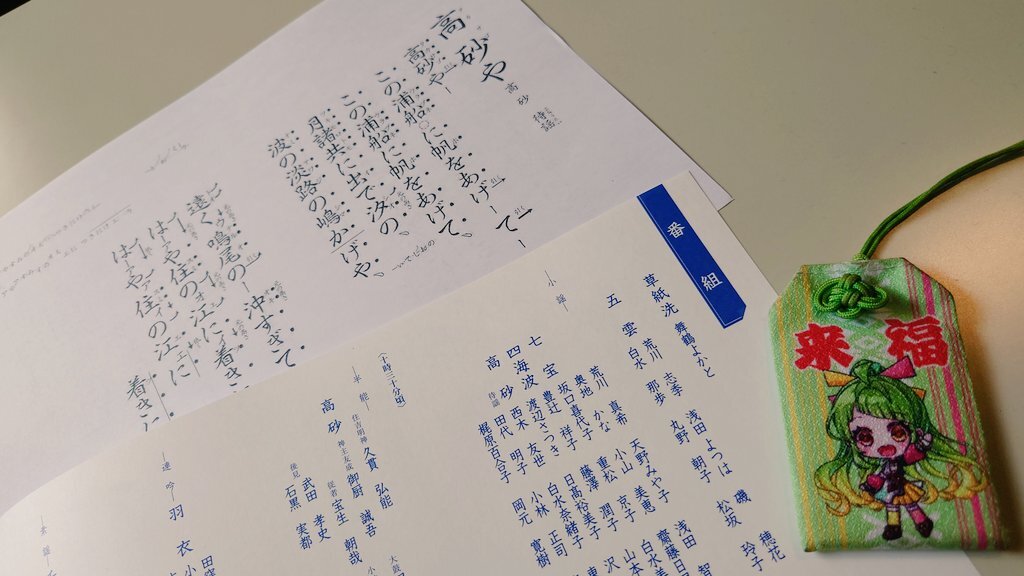 高砂や
高砂 待謡
高砂や
この浦船に帆をあげて
この浦船に帆をあげて、
月諸共に出で汐の、
波の淡路の嶋かげや、
遠く鳴尾の 沖すぎて
はーや住の江に 着き
はーや住の江に 着き
番組
草紙洗 舞鶴よかと
五雲 荒川 志季 浅田 よつは 磯 穂花
白水 那歩 丸野 朝子 松坂 玲子
小謡
七宝 荒川 真希 天野みや子 浅田 智
奥地 かな 小山 美恵 齋藤日
坂口喜代子 重松 京子 白水美
四海波 豊辻 祥子 藤澤 潤子 山本
渡辺さつき 日髙裕美子 沢
高砂 西木 友世 白水奈緒子 東
待謡 田代 明子 小林 正司
梶原百合子 岡元 寛樹
(十時三十分頃)
半能
高砂 住吉明神 久貫 弘能
神主友成 御厨 誠吾
従者 宝生 朝哉
武田 孝史
後見 石黒 実都
連吟
羽衣
来福